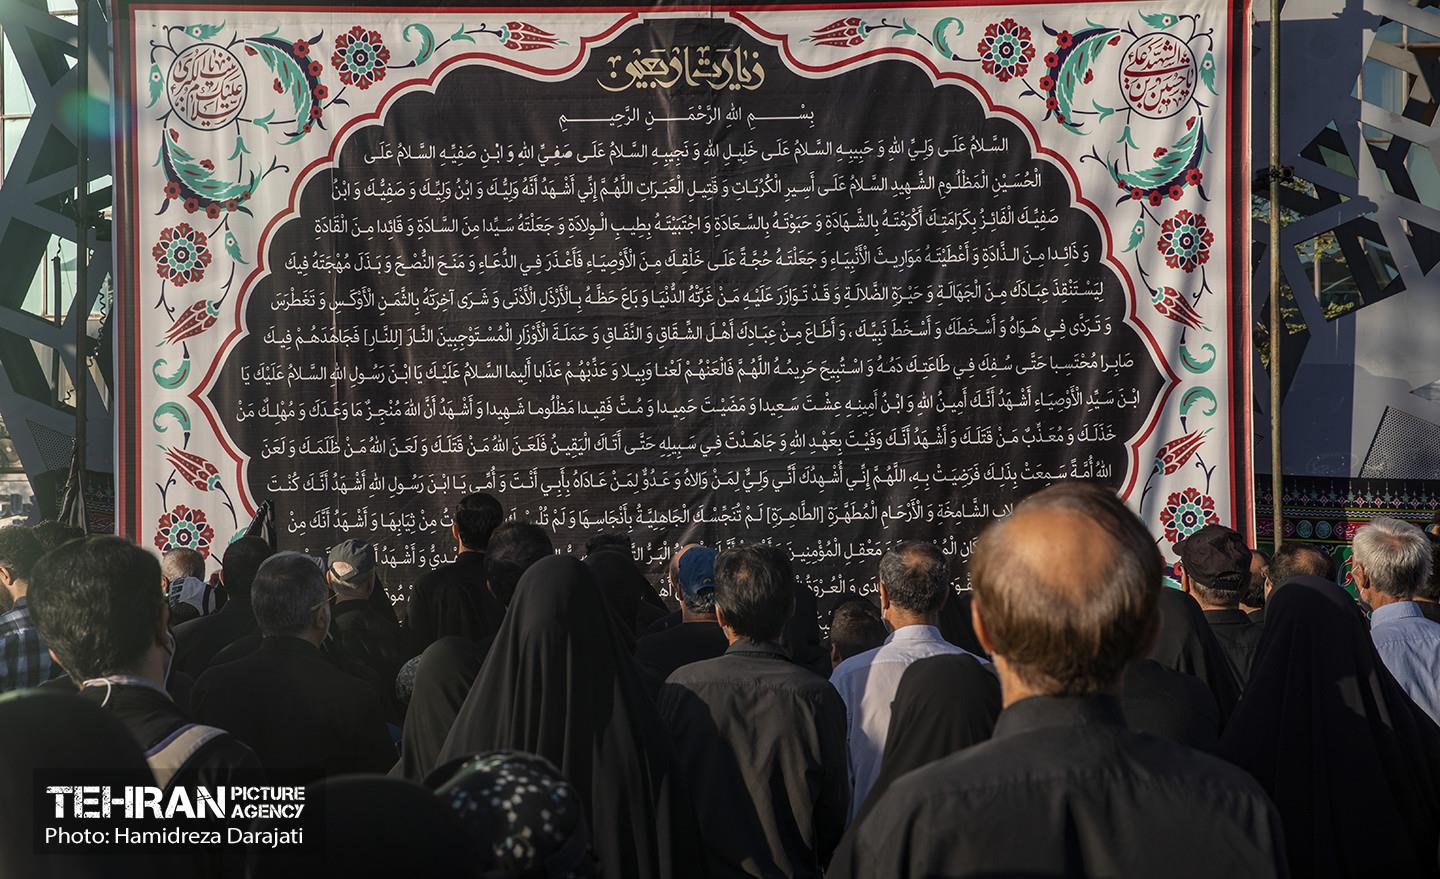 زیارت اربعین
بِسْمِ اللهِ الرَّحْمَنِ الرَّحِيمِ
السَّلامُ عَلَى وَلِيِّ اللهِ وَ حَبِيبِهِ السَّلامُ عَلَى خَلِيلِ اللهِ وَ نَجِيبِهِ السَّلامُ عَلَى صَفِيِّ اللهِ وَ ابْنِ صَفِيِّهِ السَّلامُ عَلَى
الْحُسَيْنِ الْمَظْلُومِ الشَّهِيدِ السَّلامُ عَلَى أَسِيرِ الْكُرُبَاتِ وَ قَتِيلِ الْعَبَرَاتِ اللَّهُمَّ إِنِّي أَشْهَدُ أَنَّهُ وَلِيُّكَ وَ ابْنُ وَلِيِّكَ وَ صَفِيُّكَ وَ ابْنُ
صَفِيِّكَ الْفَائِزُ بِكَرَامَتِكَ أَكْرَمْتَهُ بِالشَّهَادَةِ وَ حَبَوْتَهُ بِالسَّعَادَةِ وَ اجْتَبَيْتَهُ بِطِيبِ الْوِلادَةِ وَ جَعَلْتَهُ سَيِّدا مِنَ السَّادَةِ وَ قَائِدا مِنَ الْقَادَةِ
وَ ذَائِدا مِنَ الذَّادَةِ وَ أَعْطَيْتَهُ مَوَارِيثَ الْأَنْبِيَاءِ وَ جَعَلْتَهُ حُجَّةً عَلَى خَلْقِكَ مِنَ الْأَوْصِيَاءِ فَأَعْذَرَ فِي الدُّعَاءِ وَ مَنَحَ النُّصْحَ وَ بَذَلَ مُهْجَتَهُ فِيكَ
لِيَسْتَنْقِذَ عِبَادَكَ مِنَ الْجَهَالَةِ وَ حَيْرَةِ الضَّلالَةِ وَ قَدْ تَوَازَرَ عَلَيْهِ مَنْ غَرَّتْهُ الدُّنْيَا وَ بَاعَ حَظَّهُ بِالْأَرْذَلِ الْأَدْنَى وَ شَرَى آخِرَتَهُ بِالثَّمَنِ الْأَوْكَسِ وَ تَغَطْرَسَ
وَ تَرَدَّى فِي هَوَاهُ وَ أَسْخَطَكَ وَ أَسْخَطَ نَبِيَّكَ، وَ أَطَاعَ مِنْ عِبَادِكَ أَهْلَ الشِّقَاقِ وَ النِّفَاقِ وَ حَمَلَةَ الْأَوْزَارِ الْمُسْتَوْجِبِينَ النَّارَ [لِلنَّارِ] فَجَاهَدَهُمْ فِيكَ
صَابِرا مُحْتَسِبا حَتَّى سُفِكَ فِي طَاعَتِكَ دَمُهُ وَ اسْتُبِيحَ حَرِيمُهُ اللَّهُمَّ فَالْعَنْهُمْ لَعْنا وَبِيلا وَ عَذِّبْهُمْ عَذَابا أَلِيما السَّلامُ عَلَيْكَ يَا ابْنَ رَسُولِ اللهِ السَّلامُ عَلَيْكَ يَا
ابْنَ سَيِّدِ الْأَوْصِيَاءِ أَشْهَدُ أَنَّكَ أَمِينُ اللهِ وَ ابْنُ أَمِينِهِ عِشْتَ سَعِيدا وَ مَضَيْتَ حَمِيدا وَ مُتَّ فَقِيدا مَظْلُوما شَهِيدا وَ أَشْهَدُ أَنَّ اللهَ مُنْجِزٌ مَا وَعَدَكَ وَ مُهْلِكٌ مَنْ
خَذَلَكَ وَ مُعَذِّبٌ مَنْ قَتَلَكَ وَ أَشْهَدُ أَنَّكَ وَفَيْتَ بِعَهْدِ اللهِ وَ جَاهَدْتَ فِي سَبِيلِهِ حَتَّى أَتَاكَ الْيَقِينُ فَلَعَنَ اللهُ مَنْ قَتَلَكَ وَ لَعَنَ اللهُ مَنْ ظَلَمَكَ وَ لَعَنَ
اللهُ أُمَّةً سَمِعَتْ بِذَلِكَ فَرَضِيَتْ بِهِ، اللَّهُمَّ إِنِّي أُشْهِدُكَ أَنِّي وَلِيٌّ لِمَنْ وَالاهُ وَ عَدُوٌّ لِمَنْ عَادَاهُ بِأَبِي أَنْتَ وَ أُمِّي يَا ابْنَ رَسُولِ اللهِ أَشْهَدُ أَنَّكَ كُنْتَ
لابِ الشَّامِخَةِ وَ الْأَرْحَامِ الْمُطَهَّرَةِ [الطَّاهِرَةِ] لَمْ تُنَجِّسْكَ الْجَاهِلِيَّةُ بِأَنْجَاسِهَا وَ لَمْ تُلْبِسْكَ مِنْ ثِيَابِهَا وَ أَشْهَدُ أَنَّكَ مِنْ
وَ مَعْقِلِ الْمُؤْمِنِينَ الْبَرُّ وَ أَشْهَدُ
وَ الْعُرْوَةُ
TEHRAN PICTURE AGENCY
Photo: Hamidreza Darajati